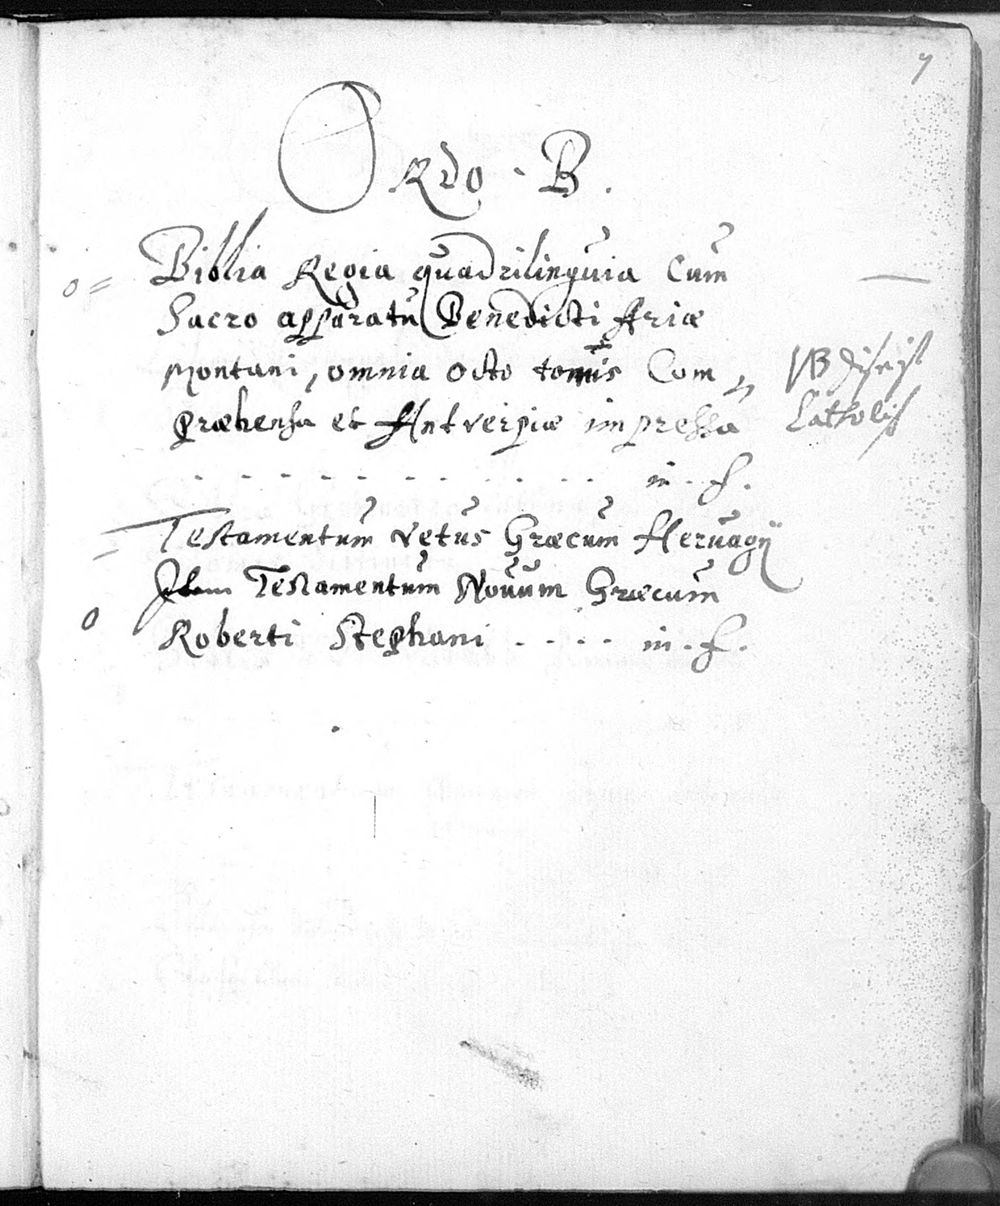 7
Ordo · B.
Biblia Regia quadrilinguia Cum
Sacro apparatu Benedicti Ariæ
Montani, omnia octo tomis Com
præhensa et Antverpiæ impressa
. . . . . . . . . . in . f.
Testamentum vetus Græcum Hervagij
Item Testamentum Novum Græcum
Roberti Stephani . . . . in . f.